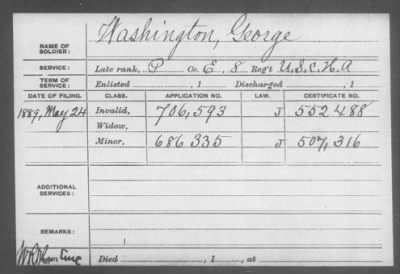 Washington, George
NAME OF SOLDIER:
SERVICE: Late rank, P Co. E, 8 Reg't U.S.C.H.A
TERM OF SERVICE: Enlisted , 1 Discharged , 1
DATE OF FILING. CLASS. APPLICATION NO. LAW. CERTIFICATE NO.
1889, May 24 Invalid, 706,593 J 552488
Widow,
Minor, 686335 J 507,316
ADDITIONAL SERVICES:
REMARKS:
Died , 1 , at